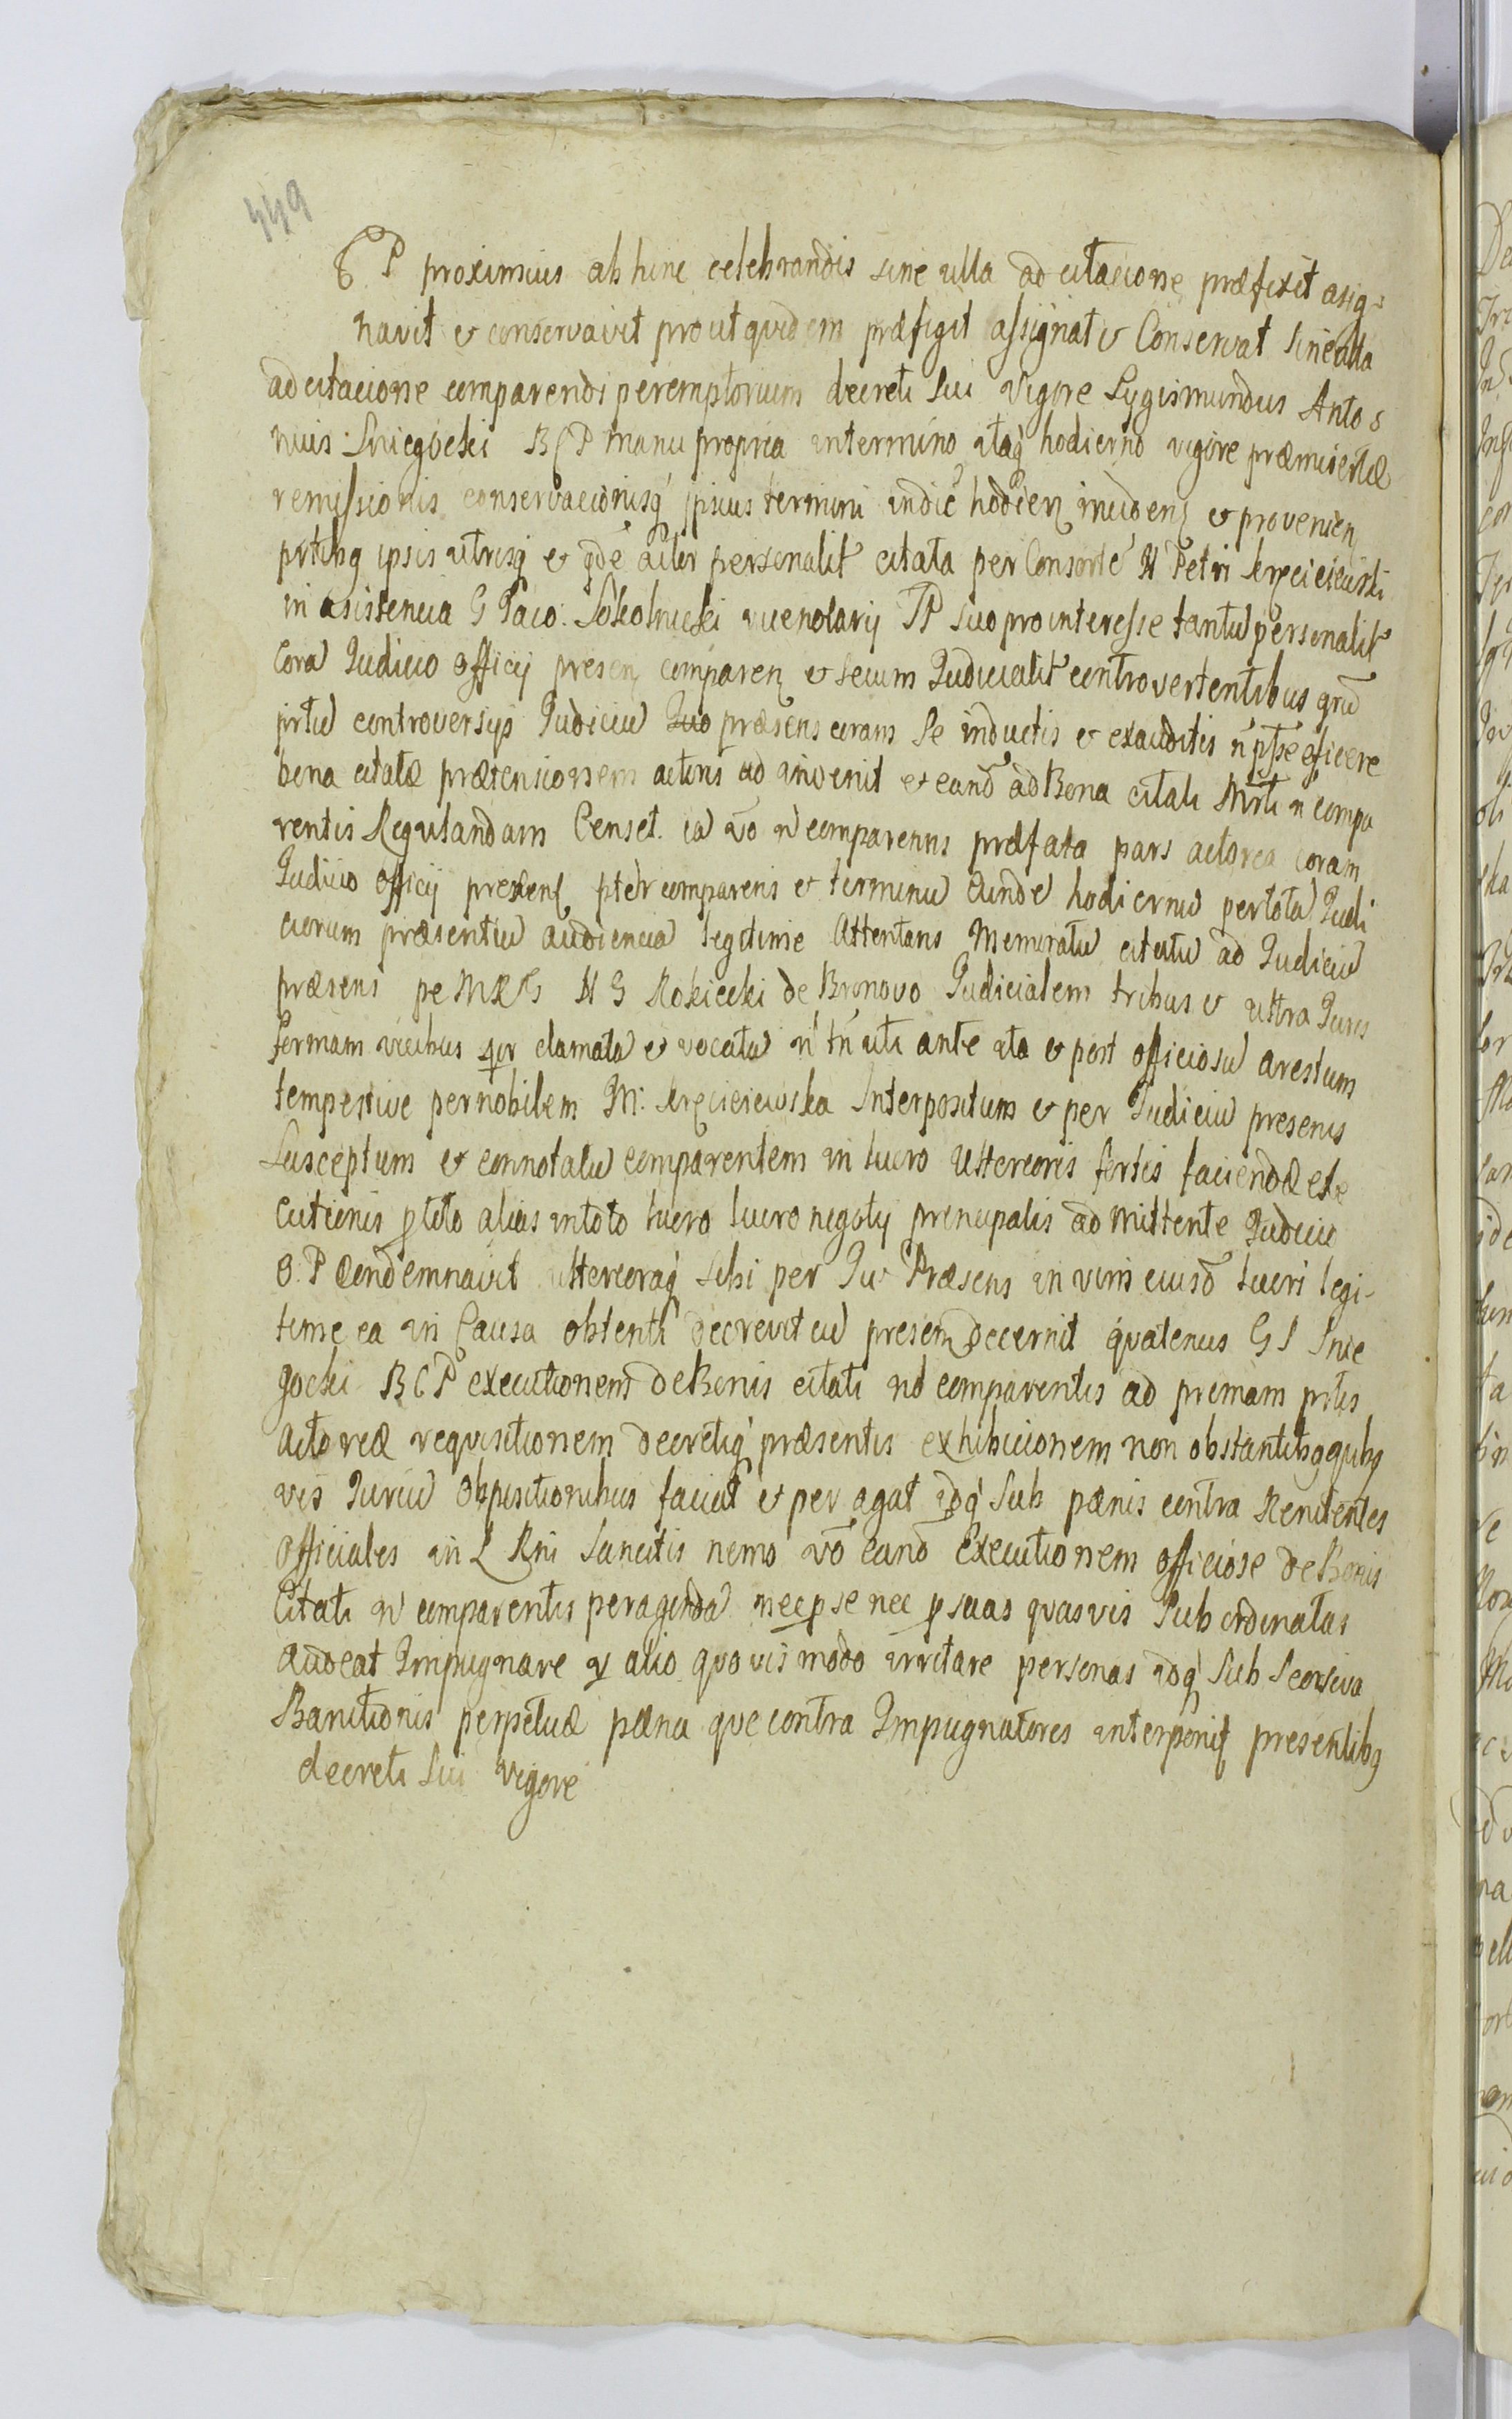 449
P proximius ab hinc celebrandis sine ulla ad citacione præfixit asig=
navit et conservavit prout quidem præfigit assignat et Conservat sine ulla
ad citacione comparendi peremptorium decreti sui vigore Sygismundus Anto
nius Sniegocki BCP manu propria in termino itaq hodierno vigore præmisertæ
remissionis conservacionisq ipsius termini indie hodier incideñ et provenieñ
prtibg ipsis utrisq et qde actor personalit citata per Consorte N Petri
in asistencia G Paio: Sokolnicki vicenotarij TP suo pro interesse tantu personalit
Cora Judicio Officij preseñ compareñ et secum Judicialit controvertentibus qru
prtiu controversijs Judiciu Quo præsens coram se inductis et exauditis n ptse officere
bona citatæ prætensionem actoris ad invenit et eand ad Bona citati Mrti n compa
rentis Regulandam Censet. ea vo n comparentis præfata pars actorea coram
Judicio Officij preseñ pter comparens et terminu Eunde hodiernu per tota Judi
ciorum præsentiu audiencia legitime Attentans Memoratu citatu ad Judiciu
præsens pe N G Rokicki de Bronovo Judicialem tribus et ultra Juris
formam vicibus qr clamatu et vocatu n tn uti ante ita et post officiosu arestum
tempestive per nobilem M: Interpositum et per Judiciu presens
Susceptum et connotatu comparentem in lucro Ulterioris fortis faciendæ exe
cutionis p toto alias in toto lucro lucro negotij principalis ad mittente Judiciu
O. P Condemnavit ulterioraq sibi per Ju Præsens in vim eiusd lucri legi-
time ea in Causa obtenti decrevit cu presen decernit quatenus G S Snie
gocki BCP executionem de Bonis citati no comparentis ad primam prtis
Actoreæ requisitionem decretiq præsentis exhibicionem non obstantibg quibg
vis Juriu Obpisitionibus faciat et per agat idq sub pænis contra Renitentes
Officiales in L Rni Sancitis nemo vo eand Executionem officiose de Bonis
Citati n comparentis peragenda nec p se nec p suas quasvis Sub ordinatas
audeat Impugnare alio quo vis modo irritare personas idq sub Seorsiva
Banitionis perpetuæ pæna que contra Impugnatores interponit presentibg
decreti sui vigore